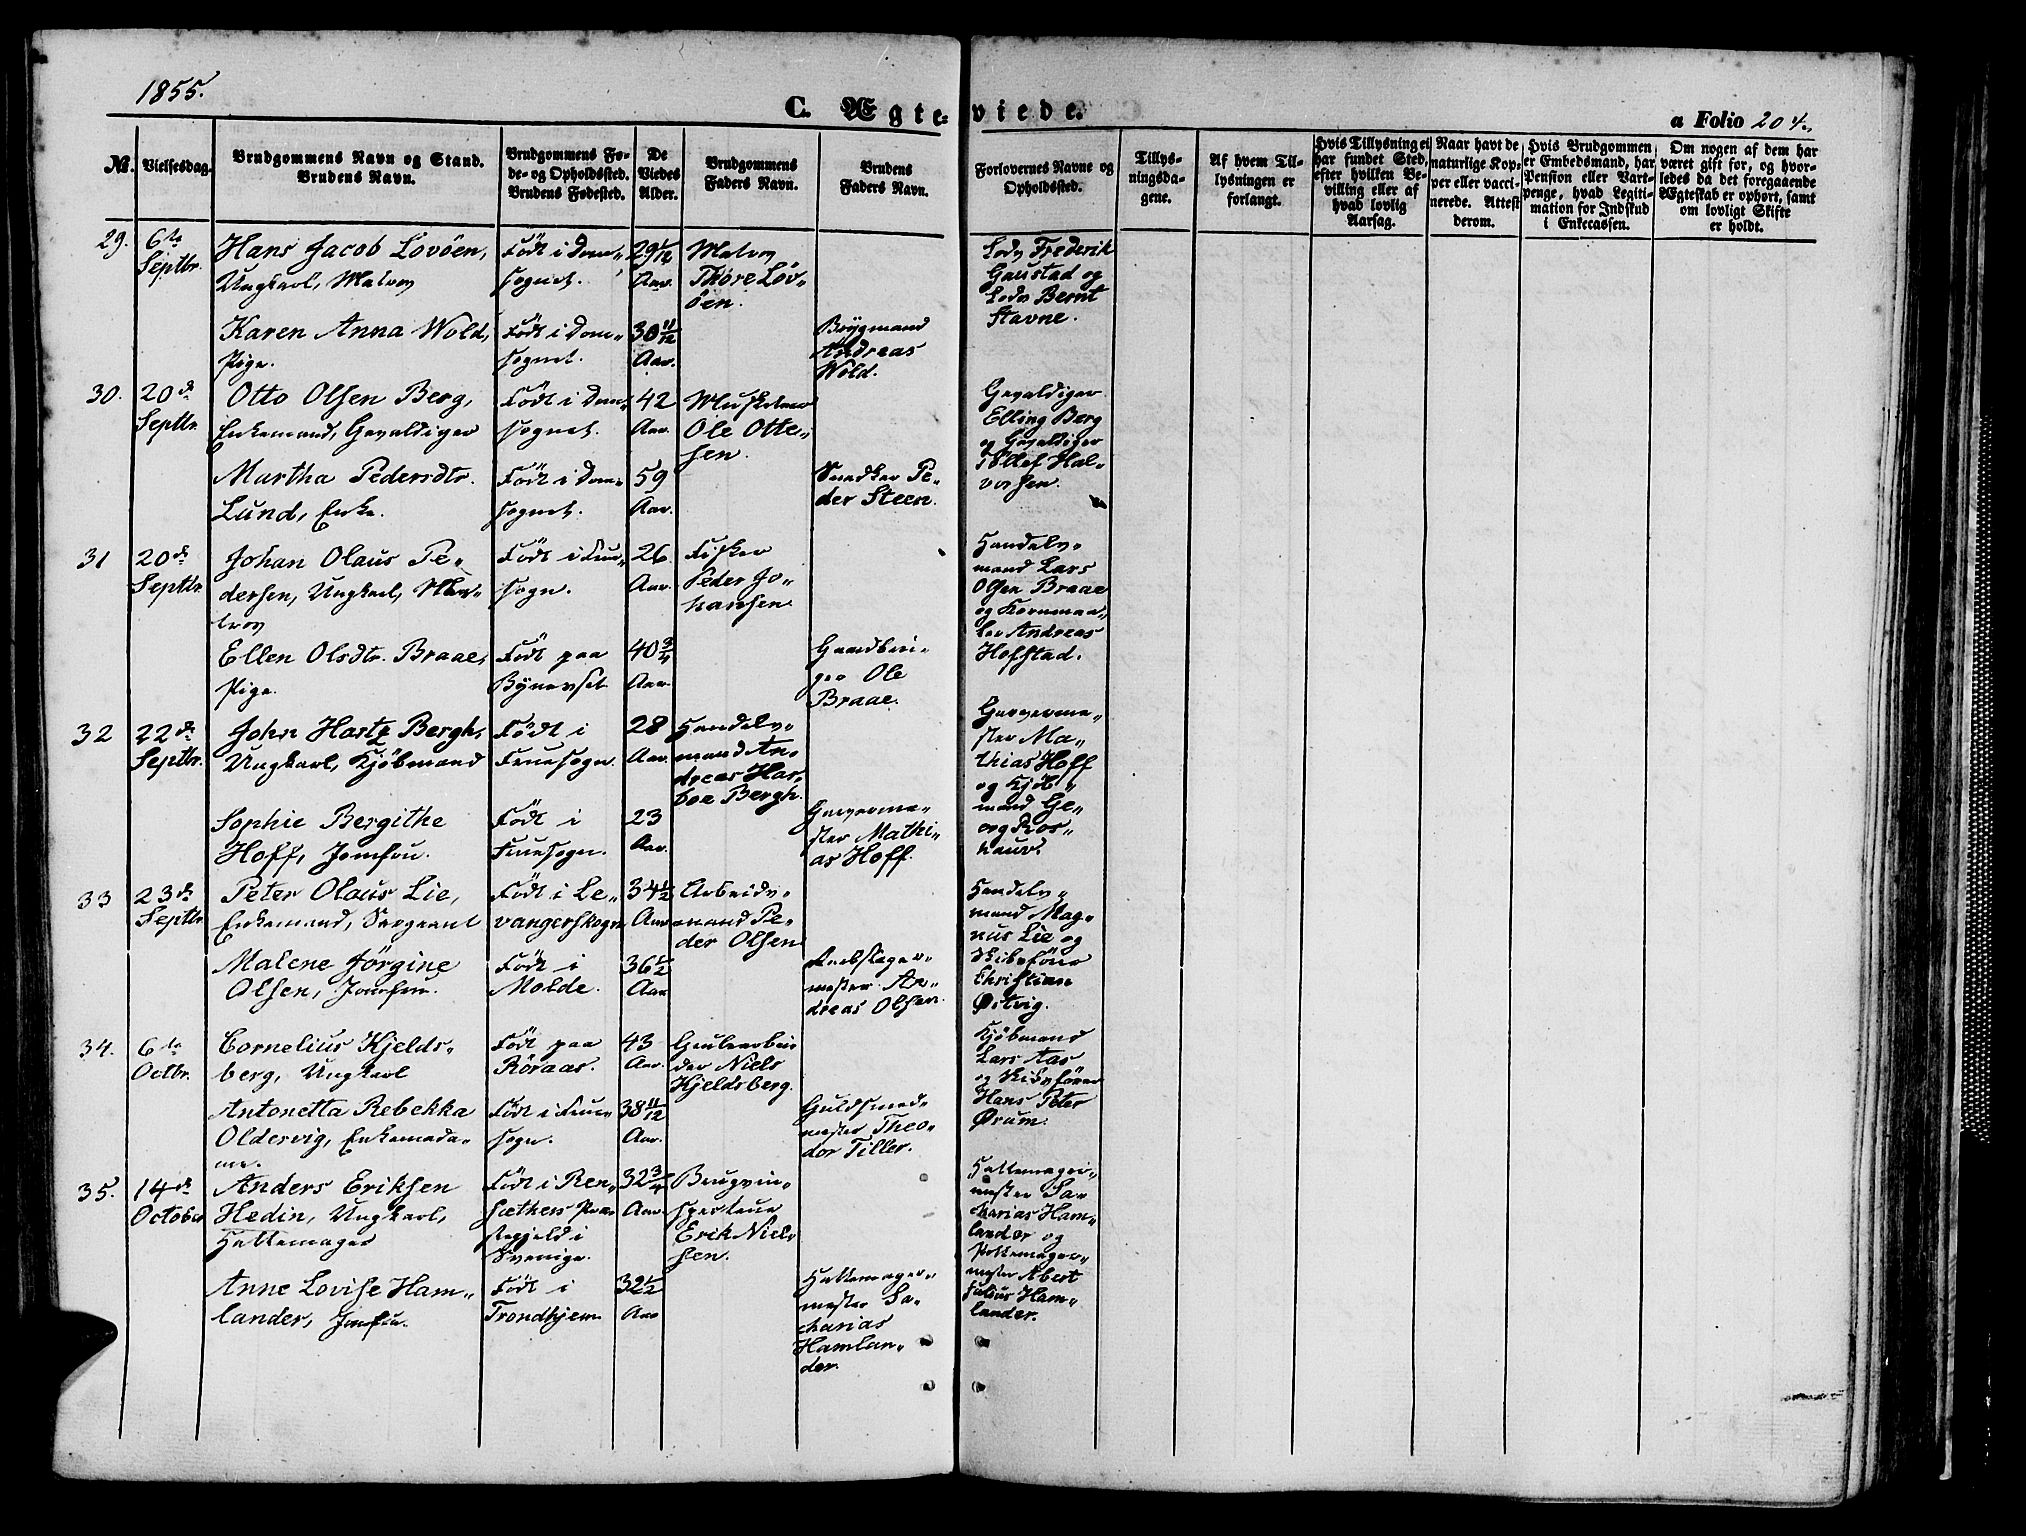 1855.
C. Ægteviede.
a Folio 204.
№.
Vielsesdag.
Brudgommens Navn og Stand.
Brudens Navn.
Brudgommens Fo-
de- og Opholdssted.
Brudens Fødested.
De
Viedes
Alder.
Brudgommens
Faders Navn.
Brudens
Faders Navn.
Forlovernes Navne og
Opholdssted.
Tillys-
ningsda-
gene.
Af hvem Til-
lysningen er
forlangt.
Hvis Tillysning ei
har fundet Sted,
efter hvilken Be-
villing eller af
hvad lovlig
Aarsag.
Naar havt de
naturlige Kop-
per eller vacci-
nerede. Attest
derom.
Hvis Brudgommen
er Embedsmand, har
Pension eller Vart-
penge, hvad Legiti-
mation for Indskud
i Enkecassen.
Om nogen af dem har
været gift før, og hvor-
ledes da det foregaaende
Ægteskab er ophørt, samt
om lovligt Skifte
er holdt.
29.
6te
Septbr.
Hans Jacob Lovöen,
Ungkarl, Matros
Födt i Dom-
sognet.
29 1/12
Aar.
Matros
Thore Löv-
öen.
Lods Frederik
Gaustad og
Lods Bernt
Stavne.
Karen Anna Wold,
Pige.
Födt i Dom-
sognet.
30 11/12
Aar.
Brygmand
Andreas
Wold.
30.
20de
Septbr.
Otto Olsen Berg,
Enkemand, Gevaldiger
Födt i Dom-
sognet.
42
Aar.
Musketeer
Ole Otte-
sen.
Gevaldiger
Elling Berg
og Gevaldiger
Tollef Hal-
vorsen.
Martha Pedersdtr.
Lund, Enke.
Födt i Dom-
sognet.
59
Aar.
Snedker Pe-
der Steen.
31
20de
Septbr.
Johan Olaus Pe-
dersen, Ungkarl, Ma-
tros
Födt i Frue-
sogn.
26
Aar.
Fisker
Peder Jo-
hansen.
Handels-
mand Lars
Olsen Braae
og Kornmaa-
ler Andreas
Hofstad.
Ellen Olsdtr. Braae,
Pige.
Födt paa
Bynesset
40 3/4
Aar.
Gaardbru-
ger Ole
Braae.
32
22de
Septbr.
John Hartz Bergh,
Ungkarl, Kjöbmand
Födt i
Fruesogn.
28
Aar.
Handels-
mand An-
dreas Har-
boe Bergh.
Garverme-
ster Ma-
thias Hoff
og Kjöb-
mand Ge-
org Ros-
naur.
Sophie Bergithe
Hoff, Jomfru.
Födt i
Fruesogn.
23
Aar.
Garverme-
ster Mathi-
as Hoff.
33
23de
Septbr.
Peter Olaus Lie,
Enkemand, Sergeant
Födt i Le-
vangerskogn
34 1/2
Aar
Arbeids-
mand Pe-
der Olsen.
Handels-
mand Mag-
nus Lie og
Skibsförer
Christian
Östvig.
Malene Jörgine
Olsen, Jomfru.
Födt i
Molde.
36 1/2
Aar
Rebslager-
mester An-
dreas Olsen.
34.
6te
Octbr.
Cornelius Kjelds-
berg, Ungkarl
Födt paa
Röraas.
43
Aar.
Grubearbei-
der Niels
Kjeldsberg.
Kjöbmand
Lars Aas
og Skibsförer
Hans Peter
Ørum.
Antonetta Rebekka
Oldervig, Enkemada-
me.
Födt i Frue-
sogn.
38 11/12
Aar.
Guldsmed-
mester Theo-
dor Tiller.
35.
14de
October
Anders Eriksen
Hedin, Ungkarl,
Hattemager
Födt i Ren-
sæthers Præ-
stegjeld i
Sverige.
32 3/4
Aar.
Brugsin-
specteur
Erik Niel-
sen.
Hattemager-
mester Sa-
charias Ham-
lander og
Pottemager-
mester Abert
Julius Ham-
lander.
Anne Lovise Ham-
lander, Jomfru.
Födt i
Trondhjem
32 1/2
Aar
Hattemager-
mester Sa-
charias
Hamlan-
der.